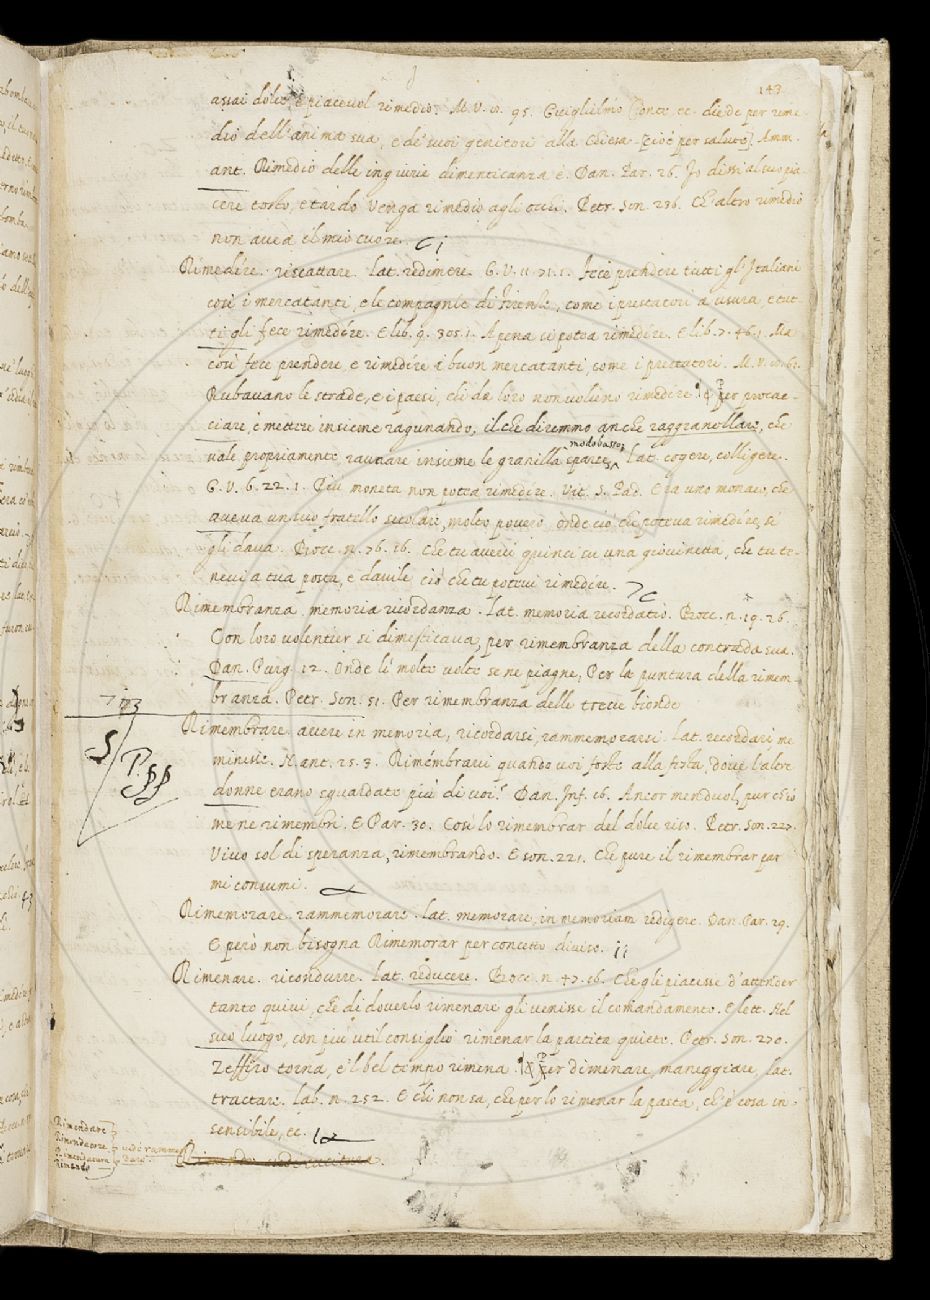 143
assai dolce, e piacevol rimedio. M.V. 10. 95. Guiglielmo Conte ec. diede per rime-
dio dell'anima sua, e de' suoi genitori alla Chiesa [cioè per salute] Amm.
ant. Rimedio delle ingiurie dimenticanza è. Dan. Par. 26. Io dissi al suo pia-
cere tosto, e tardo Venga rimedio agli occhi. Petr. Son. 236. Ch'altro rimedio
non avea il mio cuore.
Rimedire. riscattare. Lat. redimere. G.V. 11. 71. 1. Fece prendere tutti gl'Italiani
così i mercatanti, e le compagnie di Firenze, come i prestatori a usura, e tut-
ti gli fece rimedire. E lib. 9. 305. 1. Apena si potea rimedire. E lib. 7. 46. 1. Ma
così fece prendere, e rimedire i buon mercatanti, come i prestatori. M.V. 10. 62.
Rubavano le strade, e i paesi, chi da loro non volieno rimedire. Per procac-
ciare, e mettere insieme ragunando, il che diremmo anche raggranellare, che
modo basso
vale propriamente, raunare insieme le granella sparse. Lat. cogere, colligere.
G.V. 6. 22. 1. Più moneta non potea rimedire. Vit. S. Pad. Era uno monaco, che
aveva un suo fratello secolare, molto povero, onde ciò che poteva rimedire, si
gli dava. Bocc. n. 76. 16. Che tu avevi quinci su una giovinetta, che tu te-
nevi a tua posta, e davile ciò che tu potevi rimedire.
Rimembranza. memoria ricordanza. Lat. memoria recordatio. Bocc. n. 19. 26.
Con loro volentier si dimesticava, per rimembranza della contrada sua.
Dan. Purg. 12. Onde li molte volte se ne piagne, Per la puntura della rimem-
branza. Petr. Son. 51. Per rimembranza delle treccie bionde
Rimembrare. avere in memoria, ricordarsi, rammemorarsi. Lat. recordari, me-
minisse. N. ant. 25. 3. Rimembravi quando voi foste alla festa, dove l'altre
donne erano sguardate più di voi? Dan. Inf. 16. Ancor men duol, pur ch'io
me ne rimembri. E Par. 30. Così lo rimembrar del dolce riso. Petr. Son. 227.
Vivo sol di speranza, rimembrando. E son. 221. Che pure il rimembrar par
mi consumi.
Rimemorare. rammemorare. Lat. memorare, in memoriam redigere. Dan. Par. 29.
E però non bisogna Rimemorar per concetto diviso.
Rimenare. ricondurre. Lat. reducere. Bocc. n. 47. 16. Che gli piacesse d'attender
tanto quivi, che di doverlo rimenare gli venisse il comandamento. E lett. Nel
suo luogo, con più util consiglio rimenar la partita quiete. Petr. Son. 270.
Zeffiro torna, e'l bel tempo rimena. Per dimenare, maneggiare, Lat.
tractare. Lab. n. 252. E chi non sa, che per lo rimenar la pasta, ch'è cosa in-
sensibile, ec.
Rimendare
Rimendatore
Rimendatura
Rimendo
vedi rammen-
dare